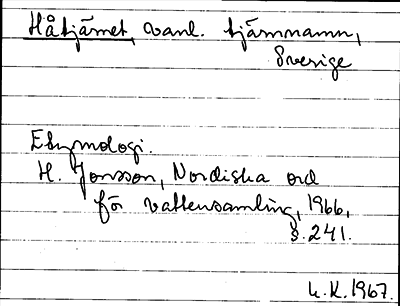 Håtjärnet, vanl. tjärnnamn,
Sverige
Etymologi.
H. Jonsson, Nordiska ord
för vattensamling, 1966,
s. 241.
L.K. 1967.